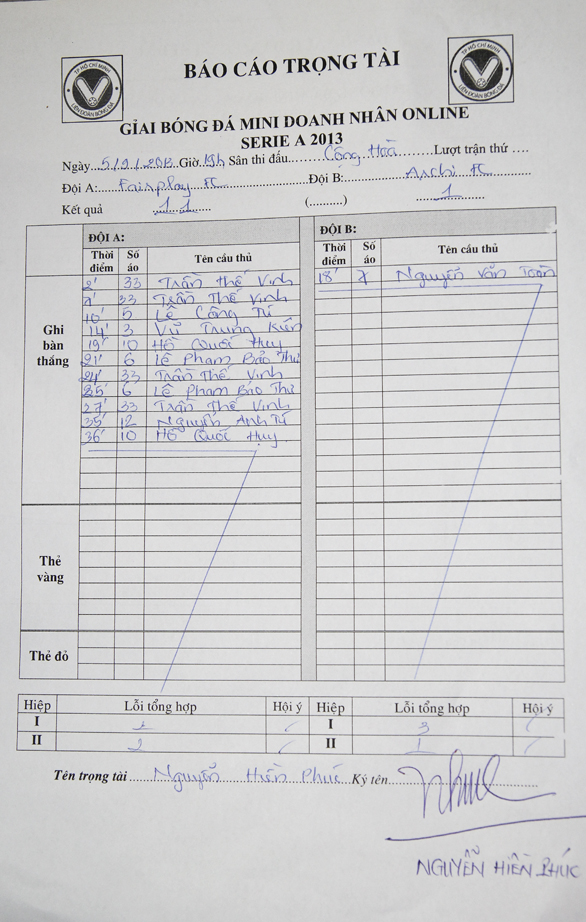 TP HỒ CHÍ MINH
LIÊN ĐOÀN BÓNG ĐÁ
BÁO CÁO TRỌNG TÀI
TP HỒ CHÍ MINH
LIÊN ĐOÀN BÓNG ĐÁ
GIẢI BÓNG ĐÁ MINI DOANH NHÂN ONLINE
SERIE A 2013
Ngày 5/9/2013 Giờ 19h Sân thi đấu Cộng Hoà Lượt trận thứ ....
Đội A: Fairplay FC Đội B: Archi FC
Kết quả 11 (..........) 1
ĐỘI A: ĐỘI B:
Thời điểm Số áo Tên cầu thủ Thời điểm Số áo Tên cầu thủ
Ghi bàn thắng
2' 33 Trần Thế Vinh 18' 7 Nguyễn Văn Toàn
7' 33 Trần Thế Vinh
10' 5 Lê Công Tú
14' 3 Vũ Trung Kiên
19' 10 Hồ Quốc Huy
21' 6 Lê Phạm Bảo Thư
24' 33 Trần Thế Vinh
25' 6 Lê Phạm Bảo Thư
27' 33 Trần Thế Vinh
35' 12 Nguyễn Anh Tú
36' 10 Hồ Quốc Huy
Thẻ vàng
Thẻ đỏ
Hiệp Lỗi tổng hợp Hội ý Hiệp Lỗi tổng hợp Hội ý
I 1 I 3
II 2 II 1
Tên trọng tài Nguyễn Hiền Phúc Ký tên
NGUYỄN HIỀN PHÚC